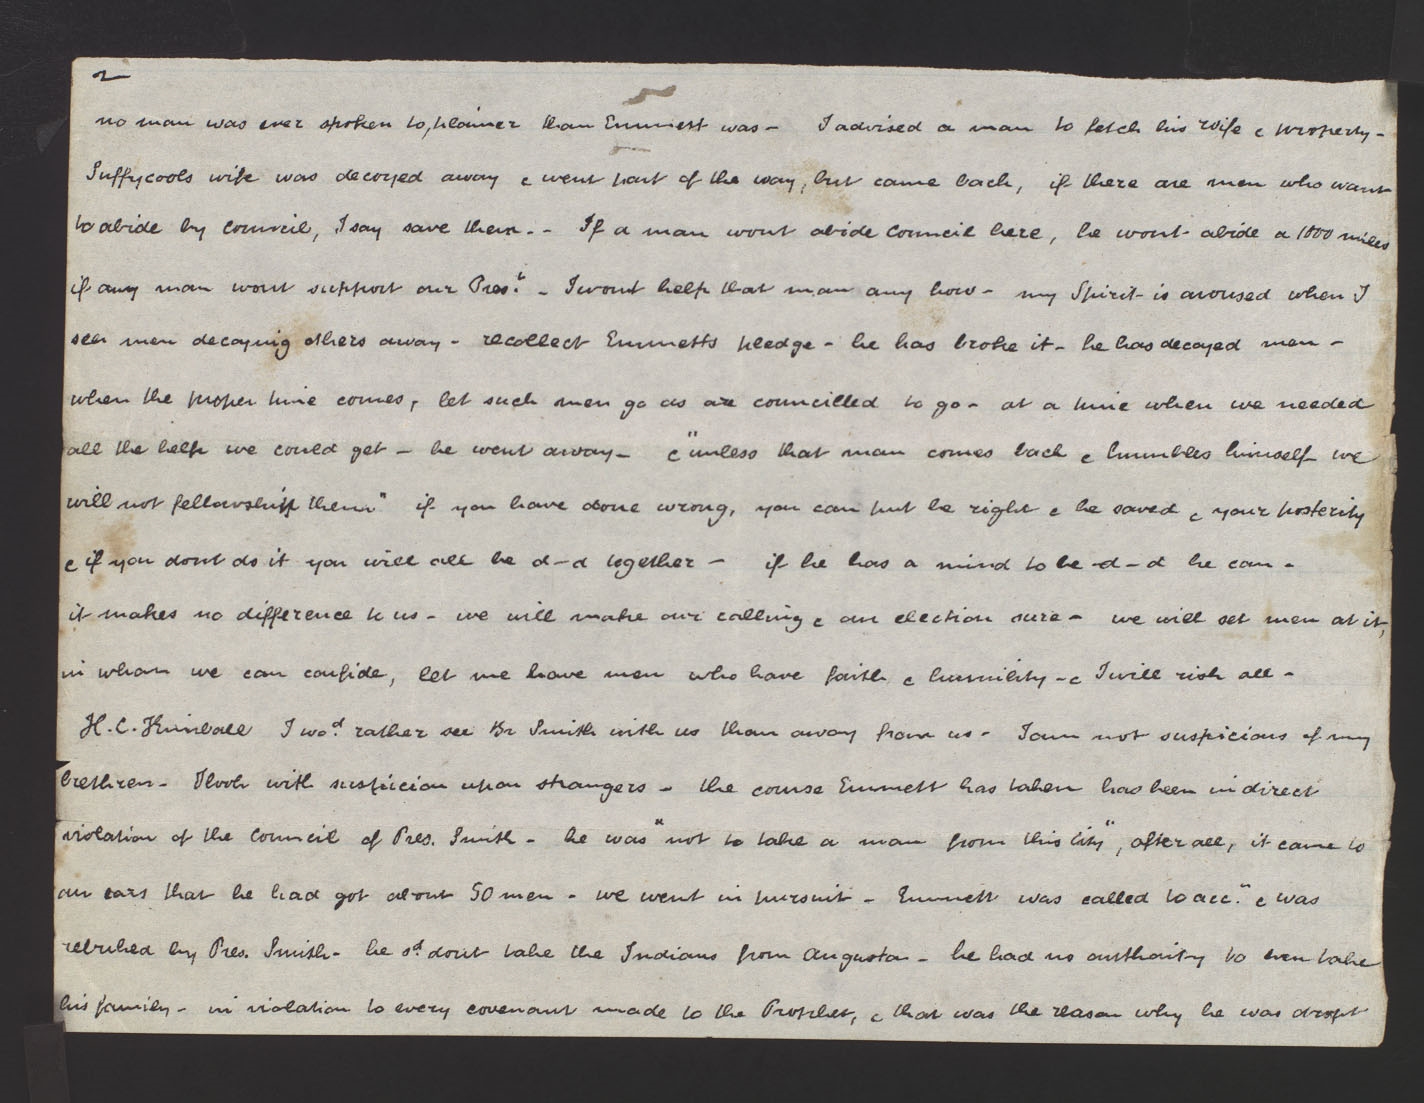 2
no man was ever spoken to, plainer than Emmett was - I advised a man to fetch his wife & property -
Suffycools wife was decoyed away & went part of the way, but came back, if there are men who want
to abide by council, I say save them. - If a man wont abide council here, he wont abide a 1000 miles
if any man wont support our Pres.t - I wont help that man any how - my Spirit is aroused when I
see men decoying others away - recollect Emmetts pledge - he has broke it - he has decoyed men -
when the proper time comes, let such men go as are councilled to go - at a time when we needed
all the help we could get - he went away - & "unless that man comes back & humbles himself we
will not fellowship them" if you have done wrong, you can put be right & be saved & your posterity
& if you dont do it you will all be d-d together - if he has a mind to be d-d he can -
it makes no difference to us - we will make our calling & our election sure - we will set men at it,
in whom we can confide, let me have men who have faith & humility - & I will risk all -
H. C. Kimball I wo.d rather see Br Smith with us than away from us - I am not suspicious of my
brethren - I look with suspicion upon strangers - the course Emmett has taken has been in direct
violation of the Council of Pres. Smith - he was "not to take a man from this City", after all, it came to
our ears that he had got about 50 men - we went in pursuit - Emmett was called to acc.t & was
rebuked by Pres. Smith - he s.d dont take the Indians from Augusta - he had no authority to even take
his family - in violation to every covenant made to the Prophet, & that was the reason why he was dropt